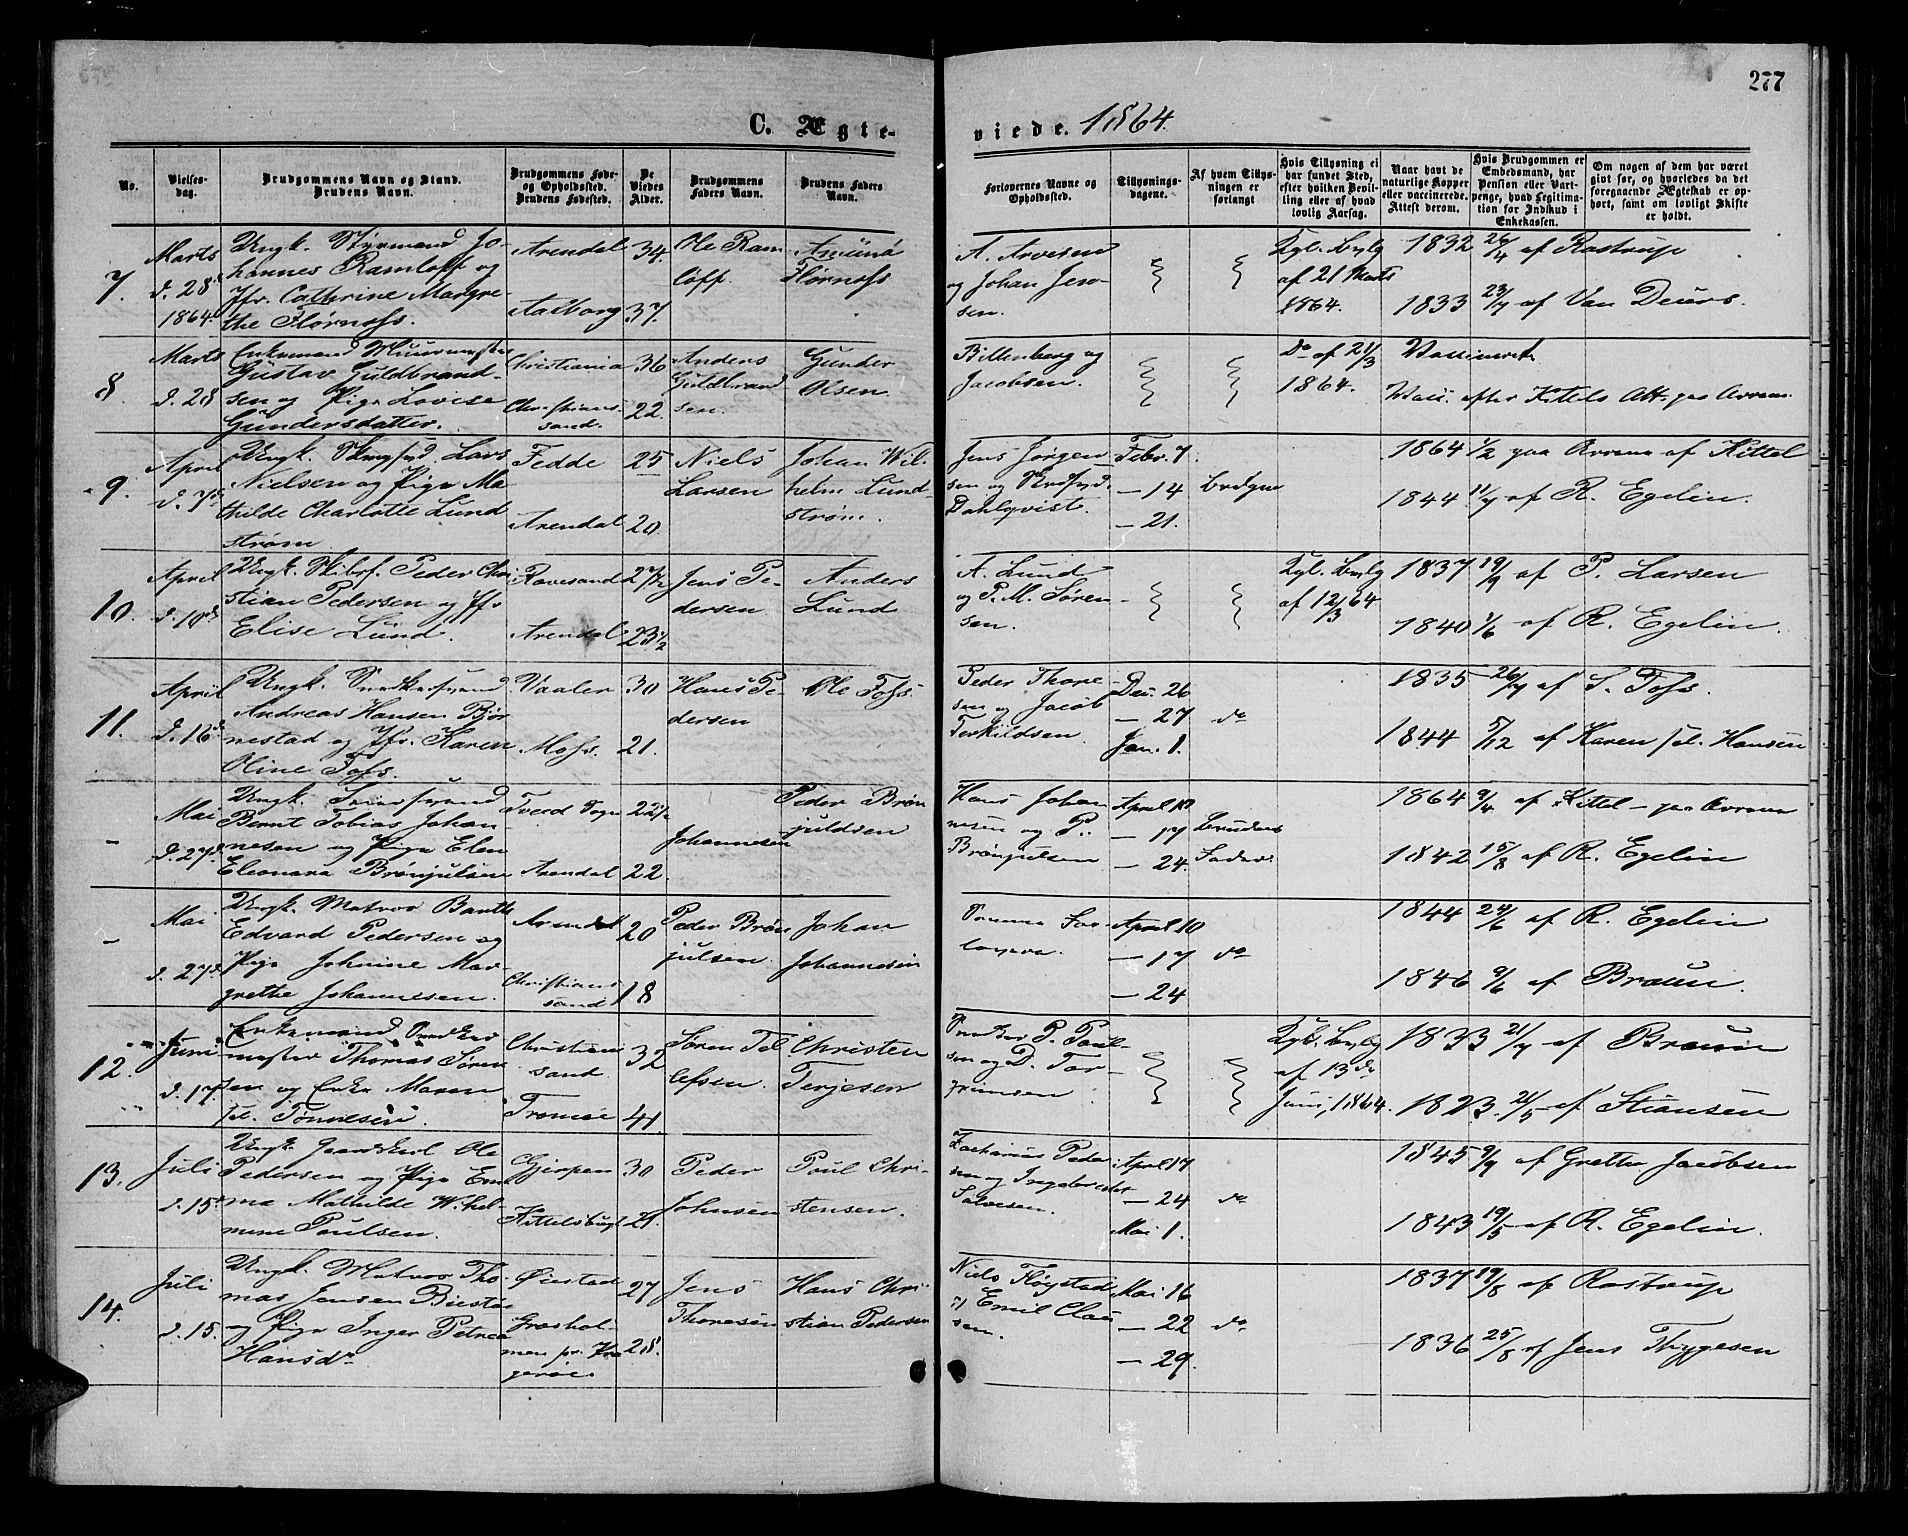 277
C. Ægte-
viede. 1864.
No.
Vielses-
dag.
Brudgommens Navn og Stand.
Brudens Navn.
Brudgommens Føde-
og Opholdssted.
Brudens Fødested.
De
Viedes
Alder.
Brudgommens
Faders Navn.
Brudens Faders
Navn.
Forlovernes Navne og
Opholdssted.
Tillysnings-
dagene.
Af hvem Tillys-
ningen er
forlangt
Hvis Tillysning ei
har fundet Sted,
efter hvilken Bevil-
ling eller af hvad
lovlig Aarsag.
Naar havt de
naturlige Kopper
eller vaccinerede.
Attest derom.
Hvis Brudgommen er
Embedsmand, har
Pension eller Vart-
penge, hvad Legitima-
tion for Indskud i
Enkekassen.
Om nogen af dem har været
givt før, og hvorledes da det
foregaaende Ægteskab er op-
hørt, samt om lovligt Skifte
er holdt.
7.
Marts
d. 28
1864.
Ungk. Styrmand Jo-
hannes Ramloff og
Jfr. Cathrine Margre-
the Flørnoss.
Arendal
Aalborg
34.
37.
Ole Ram
loff.
Flørnoss
A. Arvesen
og Johan Jen-
sen.
Kgl. Bvlg
af 21 Marts
1864.
1832 26/4 af Rostrup
1833 23/7 af Van Deurs.
8.
Marts
d. 28
Enkemand Muurmester
Gustav Guldbrand-
sen og Pige Lovise
Gundersdatter.
Christiania
Christians-
sand.
36
22.
Anders
Guldbrand
sen.
Gunder
Olsen
Billenberg og
Jacobsen.
Do af 21/3
1864.
Vaccineret
Vacc. efter Kitels Att. paa Avrem.
9.
April
d. 7d.
Ungk. Lars
Nielsen og Pige Ma
thilde Charlotte Lund
strøm
Fedde
Arendal
25
20.
Niels
Larsen
Johan Wil-
helm Lund-
strøm.
Jens Jørgen
sen og
Dahlqvist.
Febr. 7.
— 14
— 21.
Brdgm
1864 1/2 paa Avrem af Kittel
1844 11/7 af R. Egelin.
10.
April
d. 10d
Ungk. Skibsf. Peder Chri
stian Pedersen og Jfr
Elise Lund.
Ravesand
Arendal
27 1/2
23 1/2
Jens Pe-
dersen.
Anders
Lund
A. Lund
og P. M. Søren-
sen.
Kgl. Bvlg
af 12/3 64
1837 19/9 af P. Larsen
1840 1/6 af R. Egelin.
11.
April
d. 16d
Ungk. Snedkersvend
Andreas Hansen Bjør
nestad og Jfr. Karen
Oline Foss.
Vaaler
Moss.
30
21.
Hans Pe-
dersen
Ole Foss.
Peder Thore-
sen og Jacob
Terkildsen.
Dec. 26
— 27
Jan. 1.
do
1835 26/7 af S. Foss.
1844 5/12 af Karen sal. Hansen
—
Mai
d. 27d.
Ungk.
Bernt Tobias Johan-
nesen og Pige Elen
Eleonara Brønjulsen
Tveed Sogn
Arendal
22 1/2
22.
Johannesen
Peder Brøn
juldsen
Hans Johan
nesen og P.
Brønjulsen
April 10
— 17
— 24.
Brudens
Fader.
1864 9/4 af Kittel — paa Avrem
1842 15/8 af R. Egelin
—
Mai
d. 27d.
Ungk. Matros Barth
Edvard Pedersen og
Pige Johnine Mar-
grethe Johannesen.
Arendal
Christians-
sand
20
18
Peder Brøn
julsen.
Johan
Johannesen
Samme For-
lovere.
April 10
— 17
— 24
do
1844 24/6 af R. Egelin
1846 9/6 af Braun.
12.
Juni
d. 17d.
Enkemand Snedker
mester Thomas Søren
sen og Enke Maren
sal. Tønnesen.
Christian
sand
Tromøe
32
41.
Søren Tel
lefsen.
Christen
Terjesen
Snedker P. Poul-
sen og D. Tor-
grimsen
Kgl. Bvlg
af 13de
Juni 1864.
1833 21/7 af Braun
1823 21/5 af Stiansen
13.
Juli
d. 15d
Ungk. Gaardskarl Ole
Pedersen og Pige Em
ma Mathilde Wilhel-
mine Poulsen.
Gjerpen
Kittelsbugt
30
21.
Peder
Johnsen
Poul Chri-
stensen.
Zacharias Peder
sen og Ingebret
Salvesen.
April 17
— 24
Mai 1.
do
1845 9/9 af Grethe Jacobsen
1843 19/5 af R. Egelin.
14.
Juli
d. 15.
Ungk. Matros Tho-
mas Jensen Biestøe
og Pige Inger Petrea
Hansdr.
Øiestad
Græshol-
men pr. Kra
gerøe
27
28.
Jens
Thoresen
Hans Chri-
stian Pedersen
Niels Fløystad
og Emil Clau
sen.
Mai 16
— 22
— 29.
do
1837 19/8 af Rostrup
1836 25/8 af Jens Thygesen